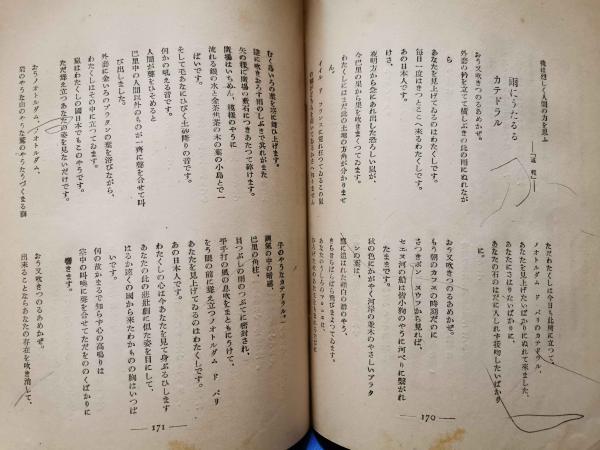 雨にうたるる
カテドラル
おう又吹きつのるあめかぜ。
外套の襟を立てて横しぶきの此の雨にぬれなが
ら
あなたを見上げてゐるのはわたくしです。
毎日一度はきつとここへ来るわたくしです。
あの日本人です。
けさ、
夜明方から急にあれ出した恐ろしい嵐が、
今巴里の果から果を吹きまくつてゐます。
わたくしにはまだ此の土地の方角が分かりませ
イイル ド フランスに荒れ狂つてゐるこの嵐
ただわたくしは今日も此所に立つて、
ノオトルダム ド パリのカテドラル、
あなたを見上げたいばかりにぬれて来ました、
あなたにさはりたいばかりに、
あなたの石のはだに人しれず接吻したいばかり
に。
おう又吹きつのるあめかぜ。
もう朝のカフエの時刻だのに
さつきポン ヌウフから見れば、
セエヌ河の船は皆小狗のやうに河べりに繋がれ
たままです。
秋の色にかがやく河岸の並木のやさしいプラタ
ンの葉は、
鷹に追はれた頬白の群のやう、
きらきらぱらぱら飛びまよつてゐます。
—170—
むく鳥いろの葉を空に舞ひ上げます。
逆に吹きおろす雨のしぶきでそれがまた
矢のやうに広場の敷石につきあたつて砕けます。
広場はいちめん、模様のやうに
流れる銀の水と金茶焦茶の木の葉の小島とで一
ぱいです。
そして毛あなにひびく土砂降の音です。
何かの吼える音です。
人間が声をひそめると
巴里中の人間以外のものが一斉に声を合せて叫
び出しました。
外套に金いろのプラタンの葉を浴びながら、
わたくしはその中に立つてゐます。
嵐はわたくしの国日本でもこのやうです。
ただ聳え立つあなたの姿を見ないだけです。
おうノオトルダム、ノオトルダム、
岩のやうな山のやうな鷲のやうなうづくまる獅
子のやうなカテドラル、
瀬気の中の暗礁、
巴里の角柱、
目つぶしの雨のつぶてに密封され、
平手打の風の息吹をまともにうけて、
をう眼の前に聳え立つノオトルダム ド パリ
あなたを見上げてゐるのはわたくしです。
あの日本人です。
わたくしの心は今あなたを見て身ぶるひします
あなたの此の悲壮劇に似た姿を目にして、
はるか遠くの国から来たわかものの胸はいつぱ
いです。
何の故かまるで知らず心の高鳴りは
空中の叫喚に声を合せてただをののくばかりに
響きます。
おう又吹きつのるあめかぜ。
出来ることならあなたの存在を吹き消して、
—171—